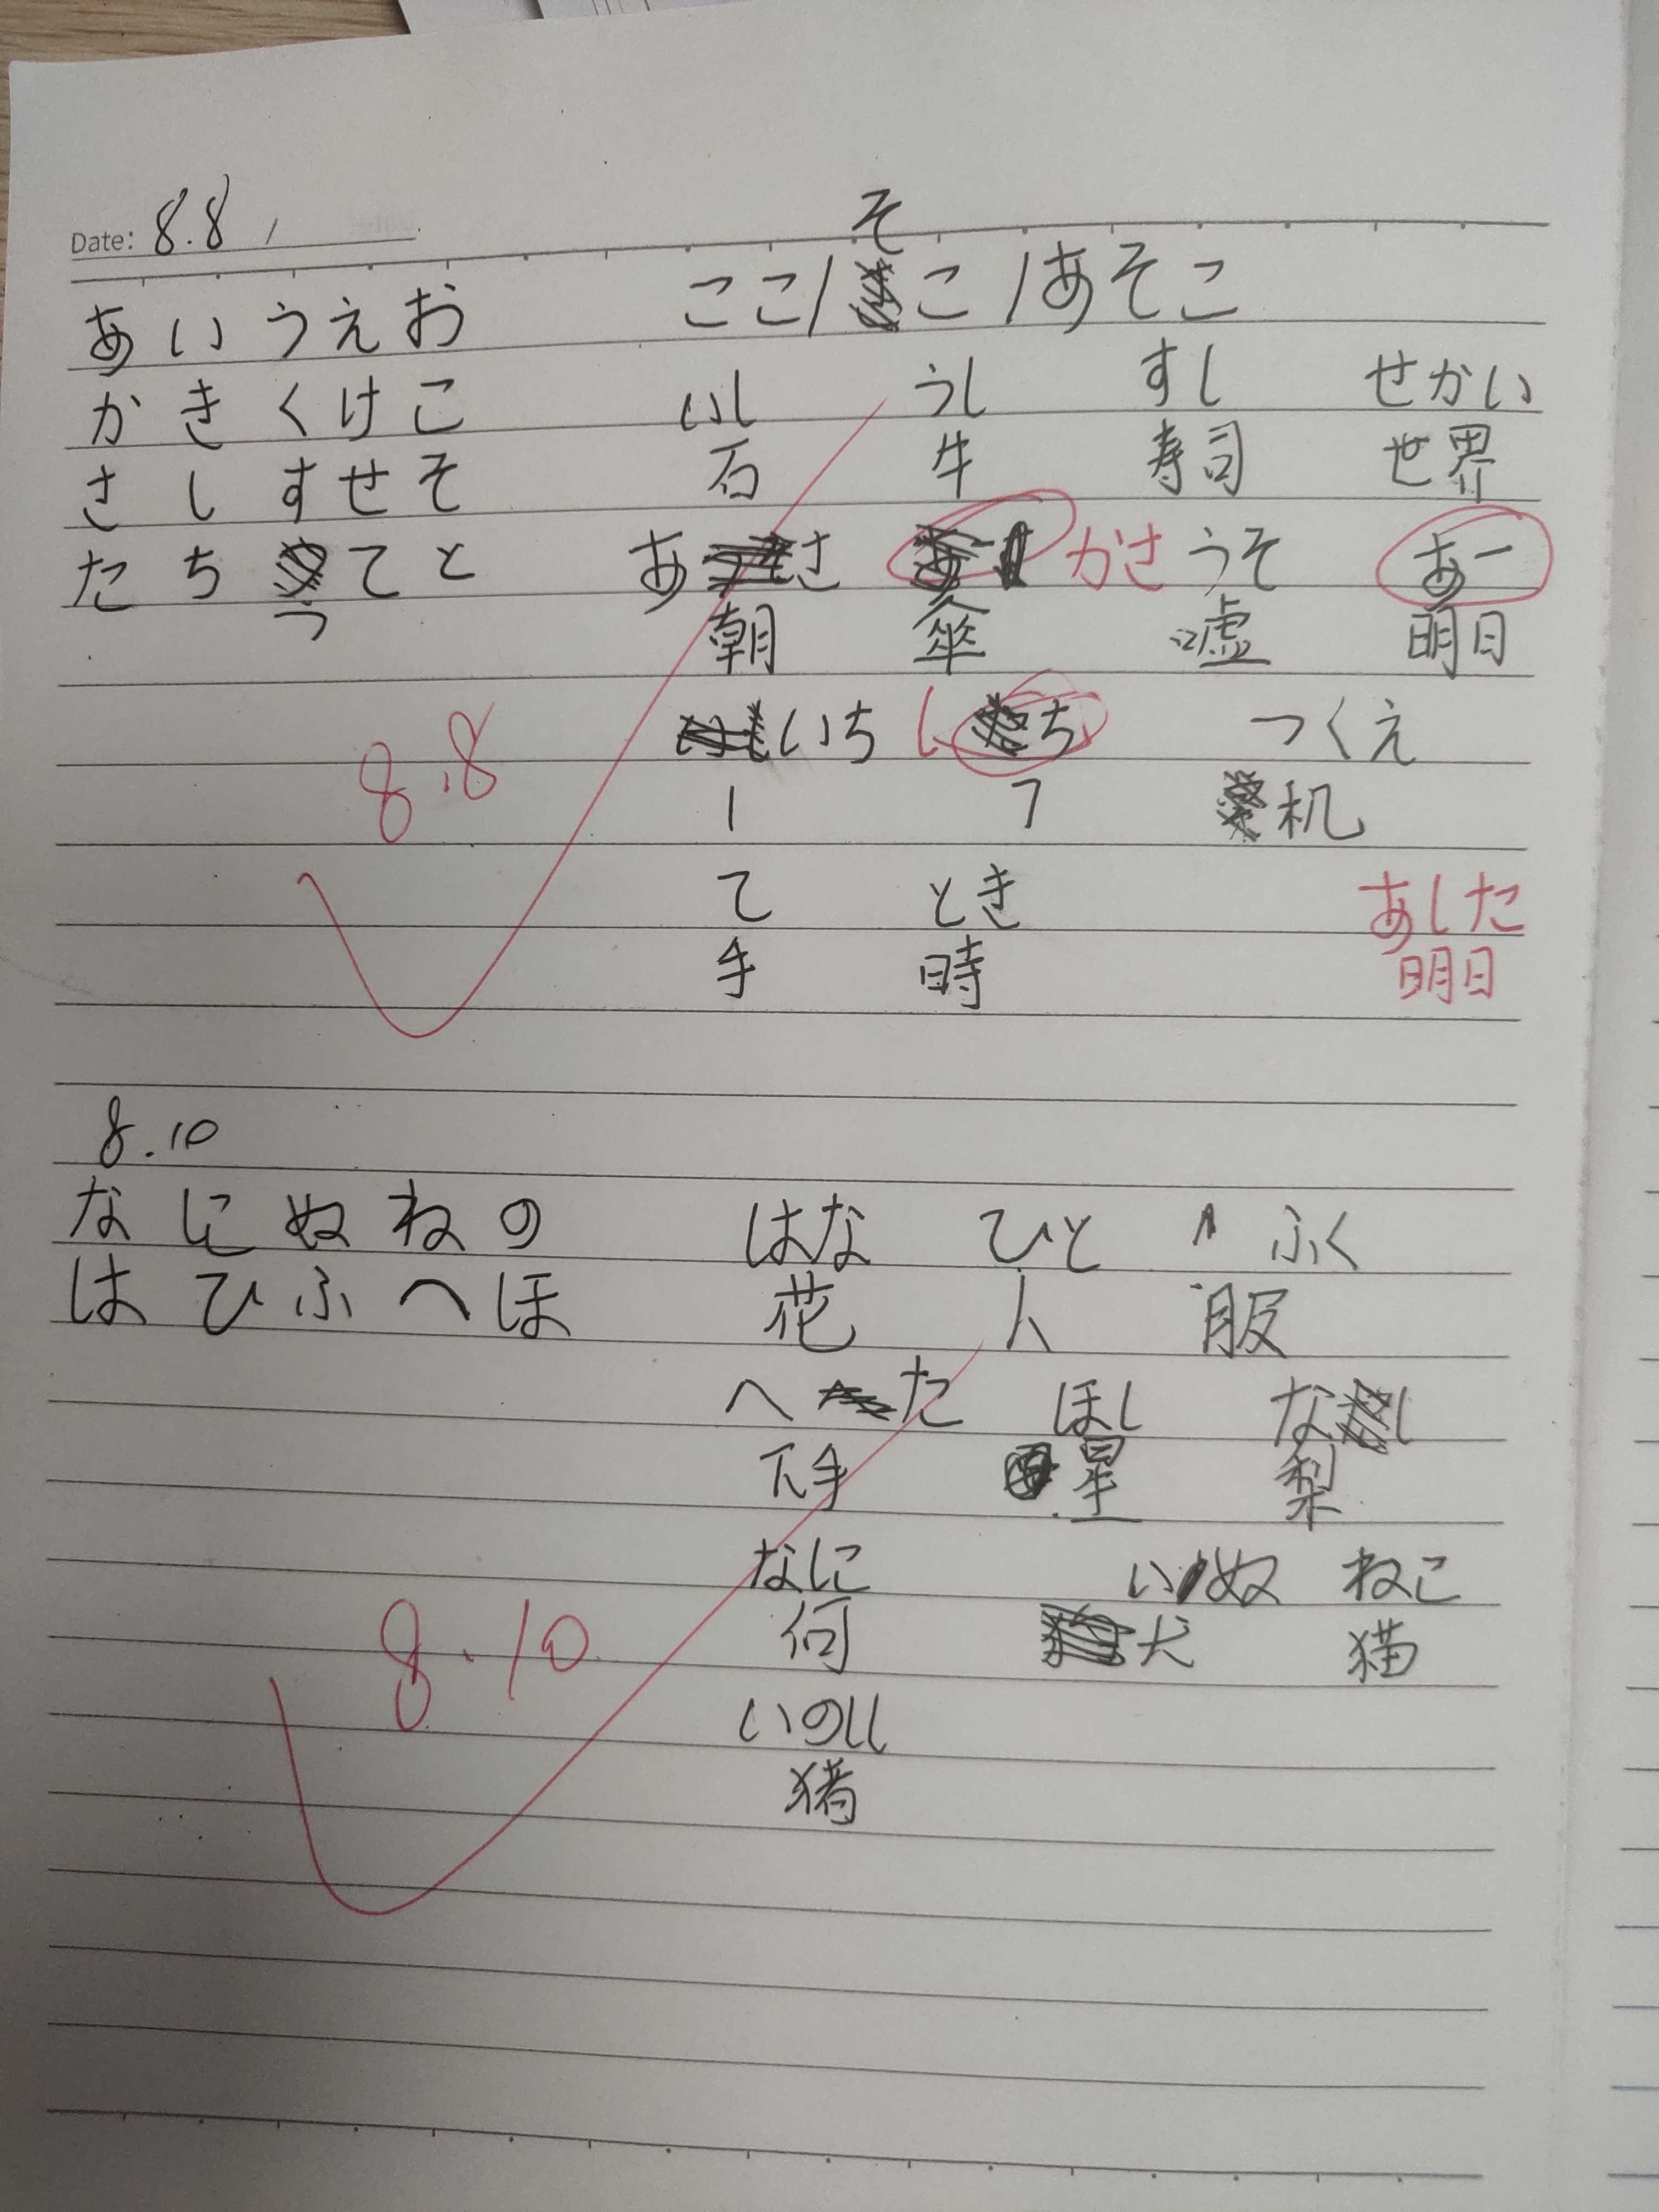 Date: 8.8
そ
あいうえお ここ/こ/あそこ
かきくけこ いし うし すし せかい
さしすせそ 石 牛 寿司 世界
たちてと あさ かさ うそ あー
つ 朝 傘 嘘 明日
8.8 いち し ち つくえ
1 7 机
て とき あした
手 時 明日
8.10
なにぬねの はな ひと ふく
はひふへほ 花 人 服
へた ほし なし
下手 星 梨
なに いぬ ねこ
8.10 何 犬 猫
いのしし
猪